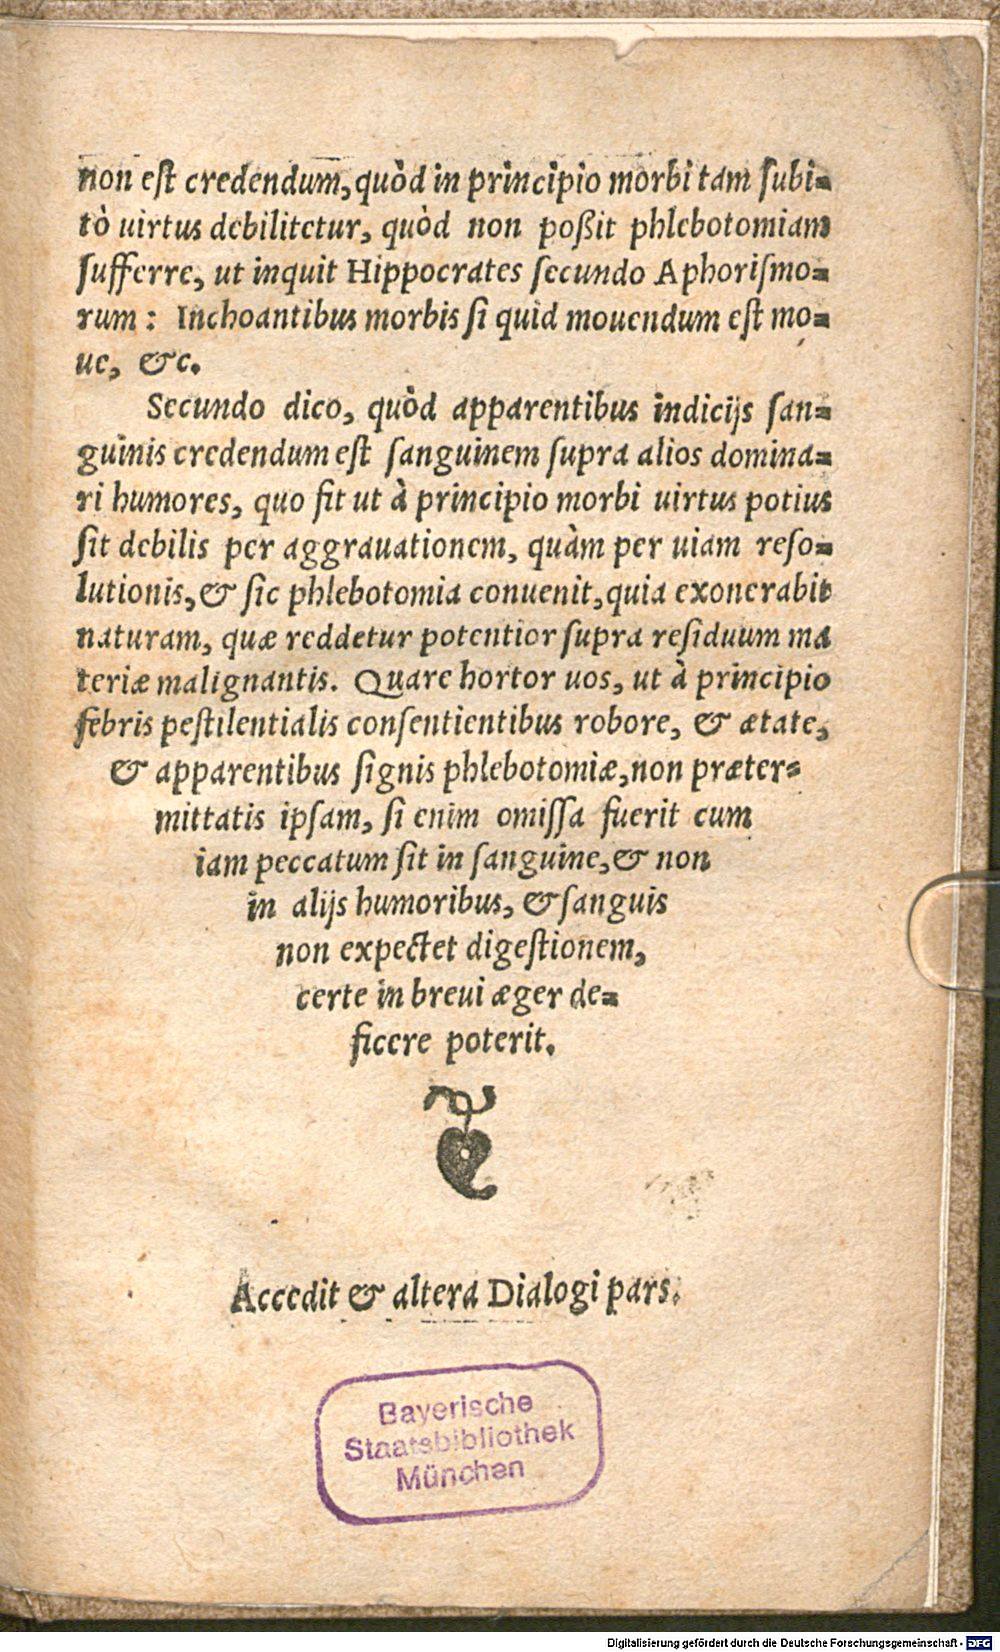 non eſt credendum, quòd in principio morbi tam ſubi-
tò uirtus debilitetur, quòd non poßit phlebotomiam
ſufferre, ut inquit Hippocrates ſecundo Aphoriſmo-
rum: Inchoantibus morbis ſi quid mouendum eſt mo-
ue, &c.
Secundo dico, quòd apparentibus indicijs ſan-
guinis credendum eſt ſanguinem ſupra alios domina-
ri humores, quo fit ut à principio morbi uirtus potius
ſit debilis per aggrauationem, quàm per uiam reſo-
lutionis, & ſic phlebotomia conuenit, quia exonerabit
naturam, quæ reddetur potentior ſupra reſiduum ma
teriæ malignantis. Quare hortor uos, ut à principio
febris peſtilentialis conſentientibus robore, & ætate,
& apparentibus ſignis phlebotomiæ, non præter-
mittatis ipſam, ſi enim omiſſa fuerit cum
iam peccatum ſit in ſanguine, & non
in alijs humoribus, & ſanguis
non expectet digeſtionem,
certe in breui æger de-
ficere poterit.
Accedit & altera Dialogi pars.
Bayerische
Staatsbibliothek
München
Digitalisierung gefördert durch die Deutsche Forschungsgemeinschaft - DFG